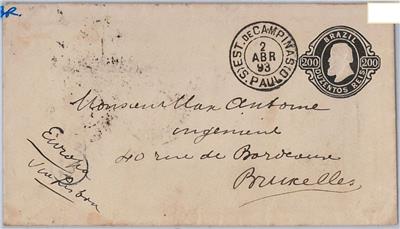 BRAZIL
200 200
DUZENTOS REIS
EST. DE CAMPINAS
2
ABR
93
(S. PAULO)
Monsieur Max Antoine
ingenieur
40 rue de Bordeaux
Bruxelles
Europa
via Lisbon